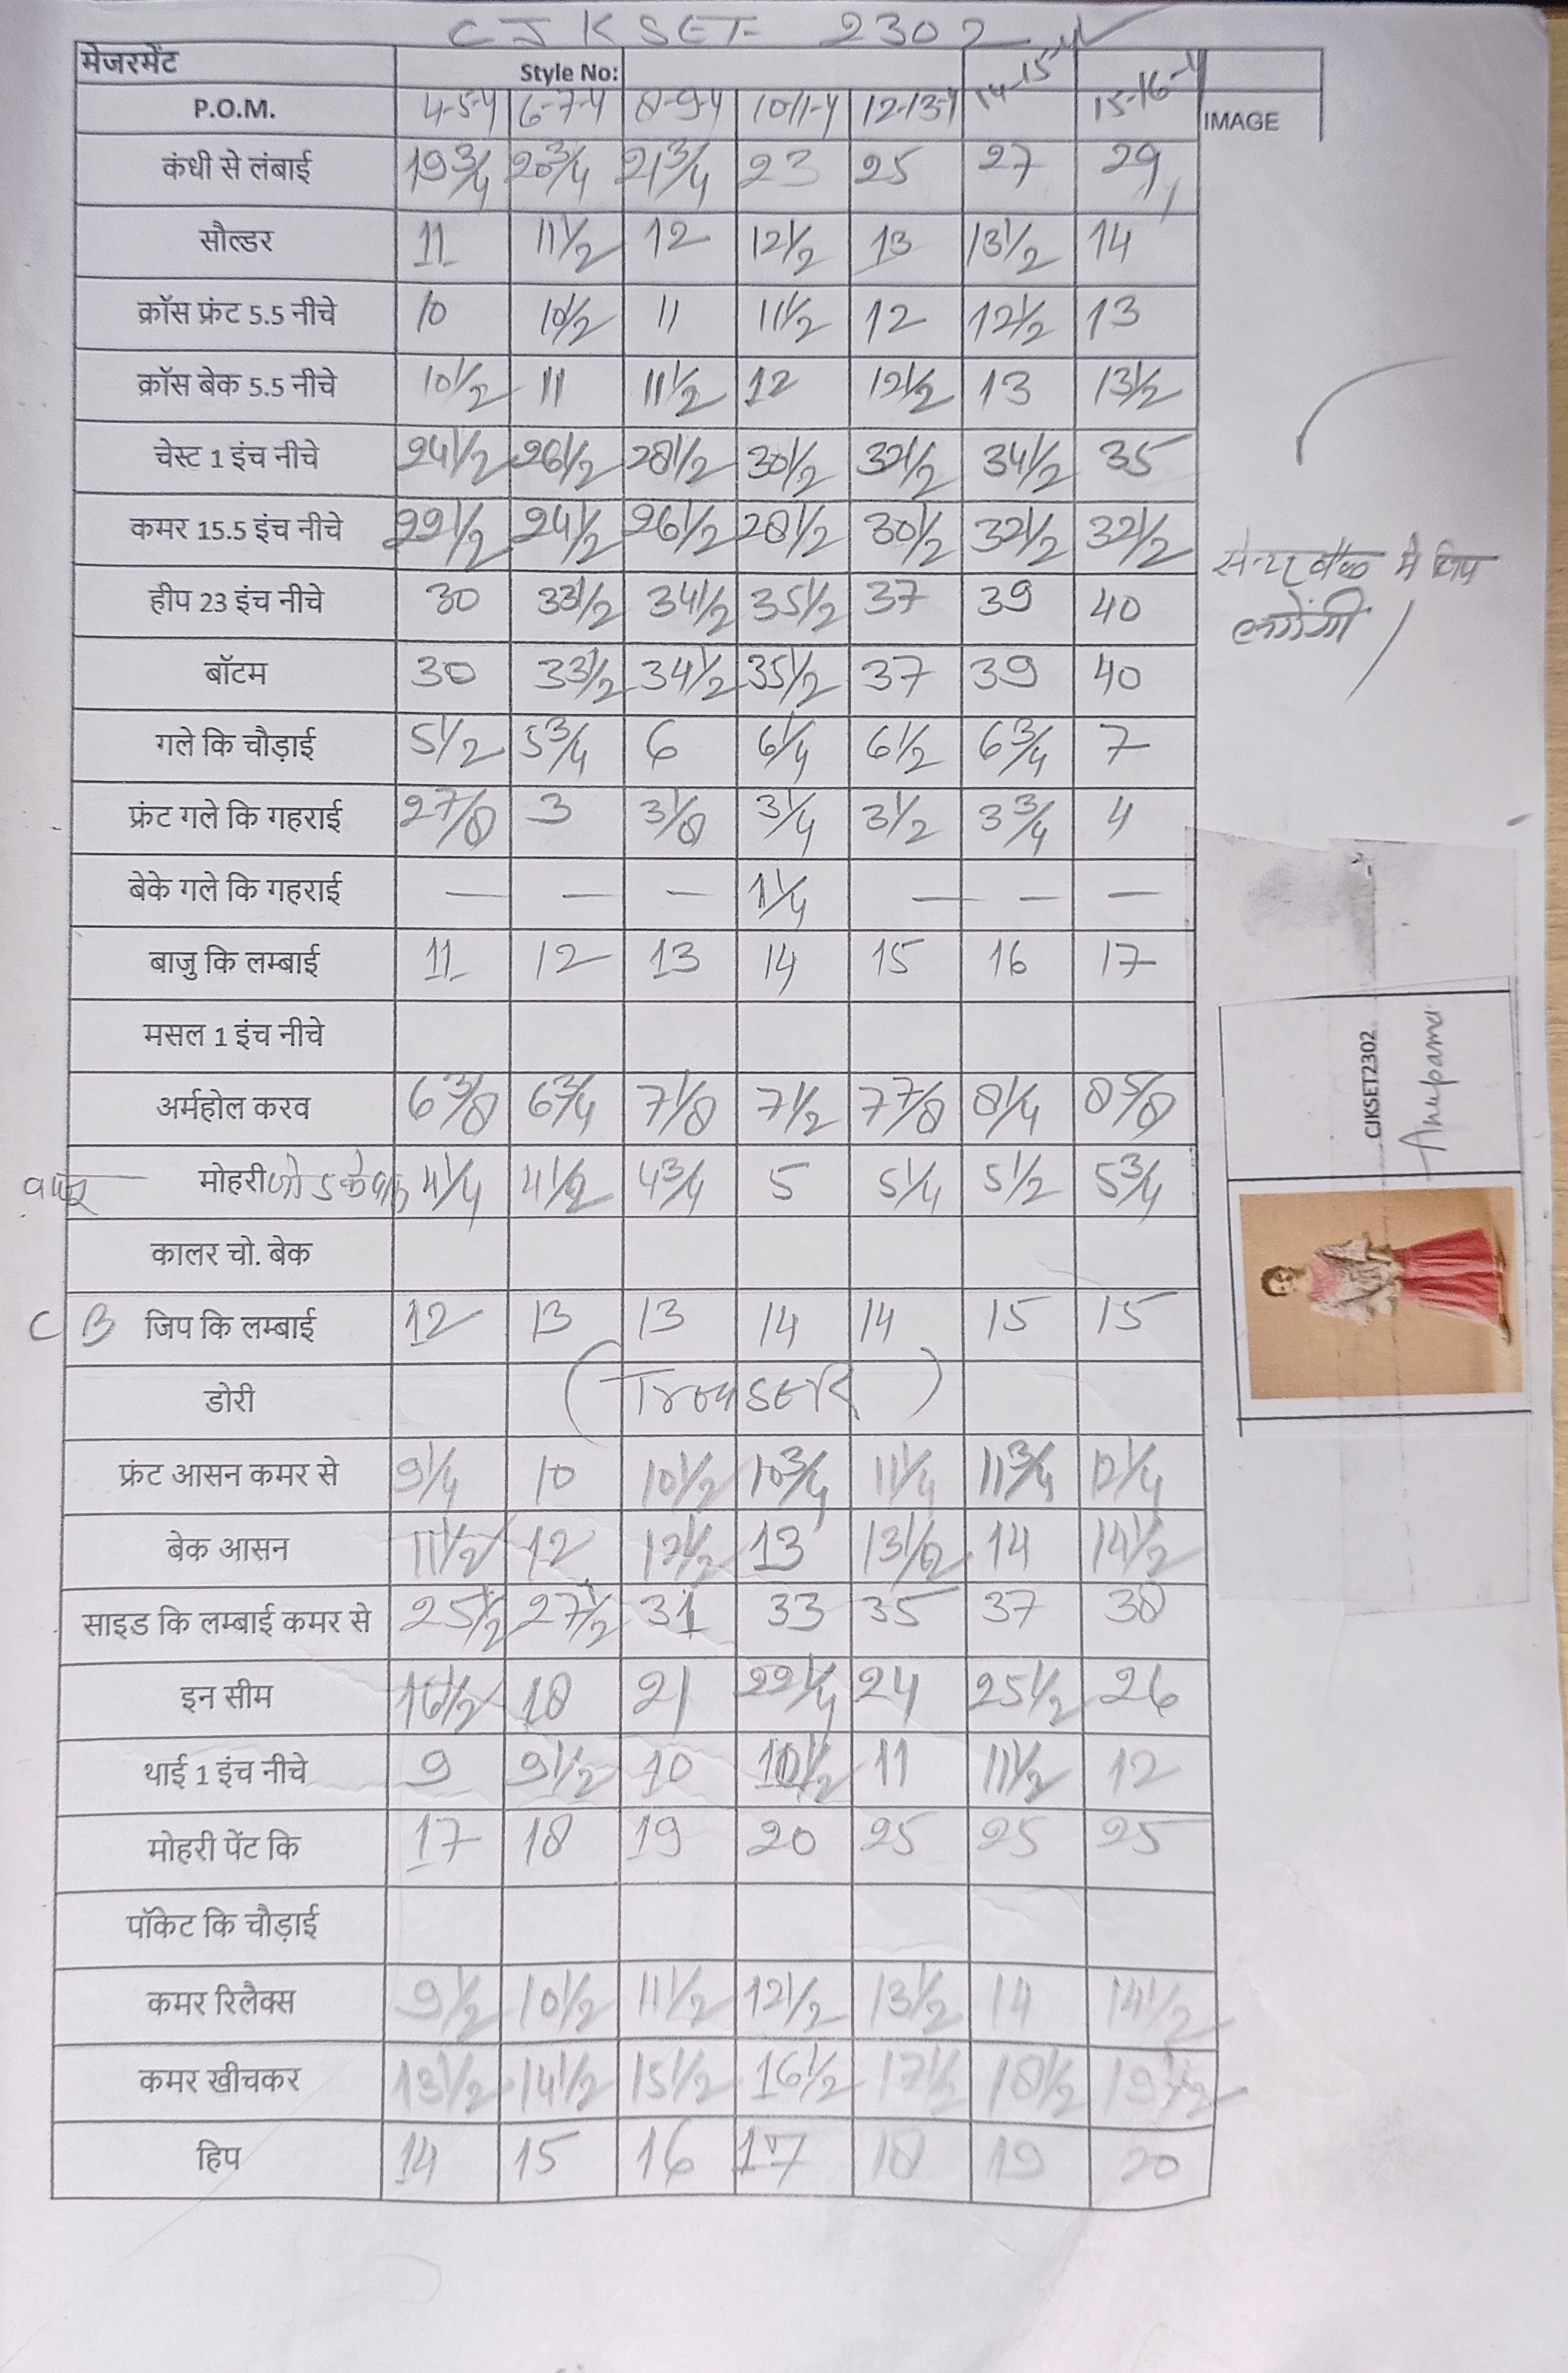 CJKSET 2302
मेजरमेंट Style No:
P.O.M. 4-5-Y 6-7-Y 8-9-Y 10-11-Y 12-13-Y 14-15-Y 15-16-Y IMAGE
कंधी से लंबाई 19 3/4 20 3/4 21 3/4 23 25 27 29
सौल्डर 11 11 1/2 12 12 1/2 13 13 1/2 14
क्रॉस फ्रंट 5.5 नीचे 10 10 1/2 11 11 1/2 12 12 1/2 13
क्रॉस बेक 5.5 नीचे 10 1/2 11 11 1/2 12 12 1/2 13 13 1/2
चेस्ट 1 इंच नीचे 24 1/2 26 1/2 28 1/2 30 1/2 32 1/2 34 1/2 35
कमर 15.5 इंच नीचे 22 1/2 24 1/2 26 1/2 28 1/2 30 1/2 32 1/2 32 1/2
हीप 23 इंच नीचे 30 33 1/2 34 1/2 35 1/2 37 39 40
बॉटम 30 33 1/2 34 1/2 35 1/2 37 39 40
गले कि चौड़ाई 5 1/2 5 3/4 6 6 1/4 6 1/2 6 3/4 7
फ्रंट गले कि गहराई 2 7/8 3 3 1/8 3 1/4 3 1/2 3 3/4 4
बेके गले कि गहराई — — — 1 1/4 — — —
बाजु कि लम्बाई 11 12 13 14 15 16 17
मसल 1 इंच नीचे
अर्महोल करव 6 3/8 6 3/4 7 1/8 7 1/2 7 7/8 8 1/4 8 5/8
मोहरी 4 1/4 4 1/2 4 3/4 5 5 1/4 5 1/2 5 3/4
कालर चो. बेक
CB जिप कि लम्बाई 12 13 13 14 14 15 15
डोरी (TrouSER)
फ्रंट आसन कमर से 9 1/4 10 10 1/2 10 3/4 11 1/4 11 3/4 12 1/4
बेक आसन 11 1/2 12 12 1/2 13 13 1/2 14 14 1/2
साइड कि लम्बाई कमर से 25 1/2 27 1/2 31 33 35 37 38
इन सीम 16 1/2 18 21 22 1/4 24 25 1/2 26
थाई 1 इंच नीचे 9 9 1/2 10 10 1/2 11 11 1/2 12
मोहरी पेंट कि 17 18 19 20 25 25 25
पॉकेट कि चौड़ाई
कमर रिलैक्स 9 1/2 10 1/2 11 1/2 12 1/2 13 1/2 14 14 1/2
कमर खीचकर 13 1/2 14 1/2 15 1/2 16 1/2 17 1/2 18 1/2 19 1/2
हिप 14 15 16 17 18 19 20
में जिप
लगेगी
CJKSET2302
Anupama